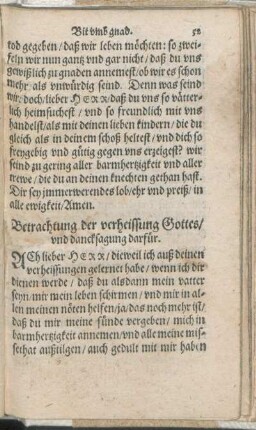 Bit vmb gnad. 58
tod gegeben / daß wir leben möchten: so zwei-
feln wir nun gantz vnd gar nicht / daß du vns
gewißlich zu gnaden annemest / ob wir es schon
mehr als vnwürdig seind. Denn was seind
wir / doch / lieber HERR / daß du vns so vätter-
lich heimsuchest / vnd so freundlich mit vns
handelst / als mit deinen lieben kindern / die du
gleich als in deinem schoß heltest / vnd dich so
freygebig vnd gütig gegen vns erzeigst? wir
seind zu gering aller barmhertzigkeit vnd aller
trewe / die du an deinen knechten gethan hast.
Dir sey immerwerendes lob / ehr vnd preiß / in
alle ewigkeit / Amen.
Betrachtung der verheissung Gottes /
vnd dancksagung darfür.
ACh lieber HERR / dieweil ich auß deinen
verheissungen gelernet habe / wenn ich dir
dienen werde / daß du alsdann mein vatter
seyn / mir mein leben schirmen / vnd mir in al-
len meinen nöten helfen / ja / das noch mehr ist /
daß du mir meine sünde vergeben / mich in
barmhertzigkeit annemen / vnd alle meine mis-
sethat außtilgen / auch gedult mit mir haben